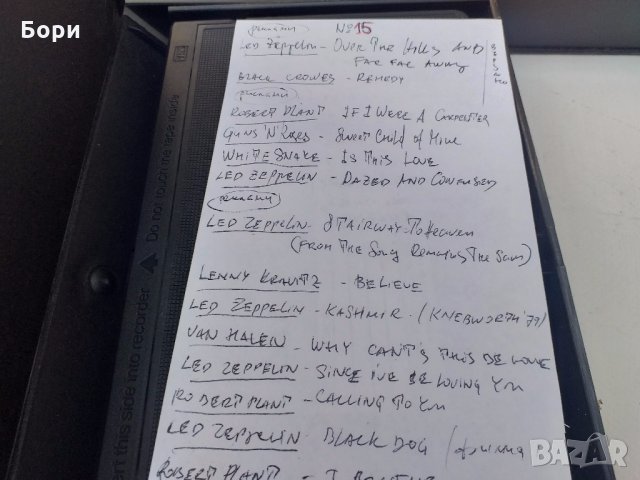 Бори
реклами
№15
LED ZEPPELIN - OVER THE HILLS AND
FAR FAR AWAY
BLACK CROWES - REMEDY
реклами
ROBERT PLANT IF I WERE A CARPENTER
GUNS 'N' ROSES - SWEET CHILD OF MINE
WHITESNAKE - IS THIS LOVE
LED ZEPPELIN - DAZED AND CONFUSED
реклами
LED ZEPPELIN - STAIRWAY TO HEAVEN
(FROM THE SONG REMAINS THE SAME)
LENNY KRAVITZ - BELIEVE
LED ZEPPELIN - KASHMIR - (KNEBWORTH '79)
VAN HALEN - WHY CAN'T THIS BE LOVE
LED ZEPPELIN - SINCE I'VE BE LOVING YOU
ROBERT PLANT - CALLING TO YOU
LED ZEPPELIN - BLACK DOG
ROBERT PLANT - I
Do not touch the tape inside
ert this side into recorder
BAZAR